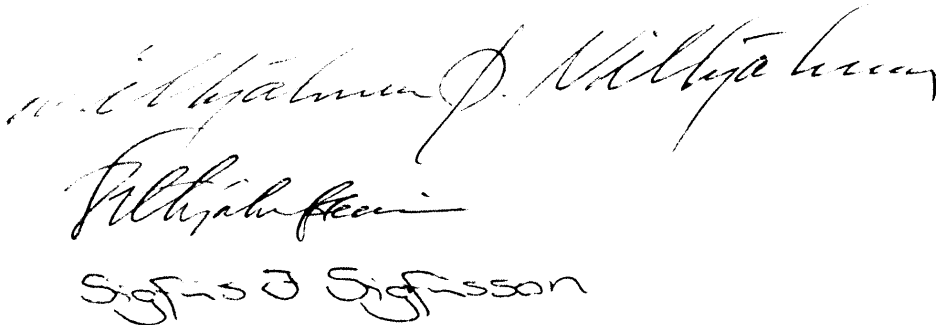 Vilhjálmur Þ. Vilhjálmsson
Vilhjálmur
Sigfús J Sigfússon